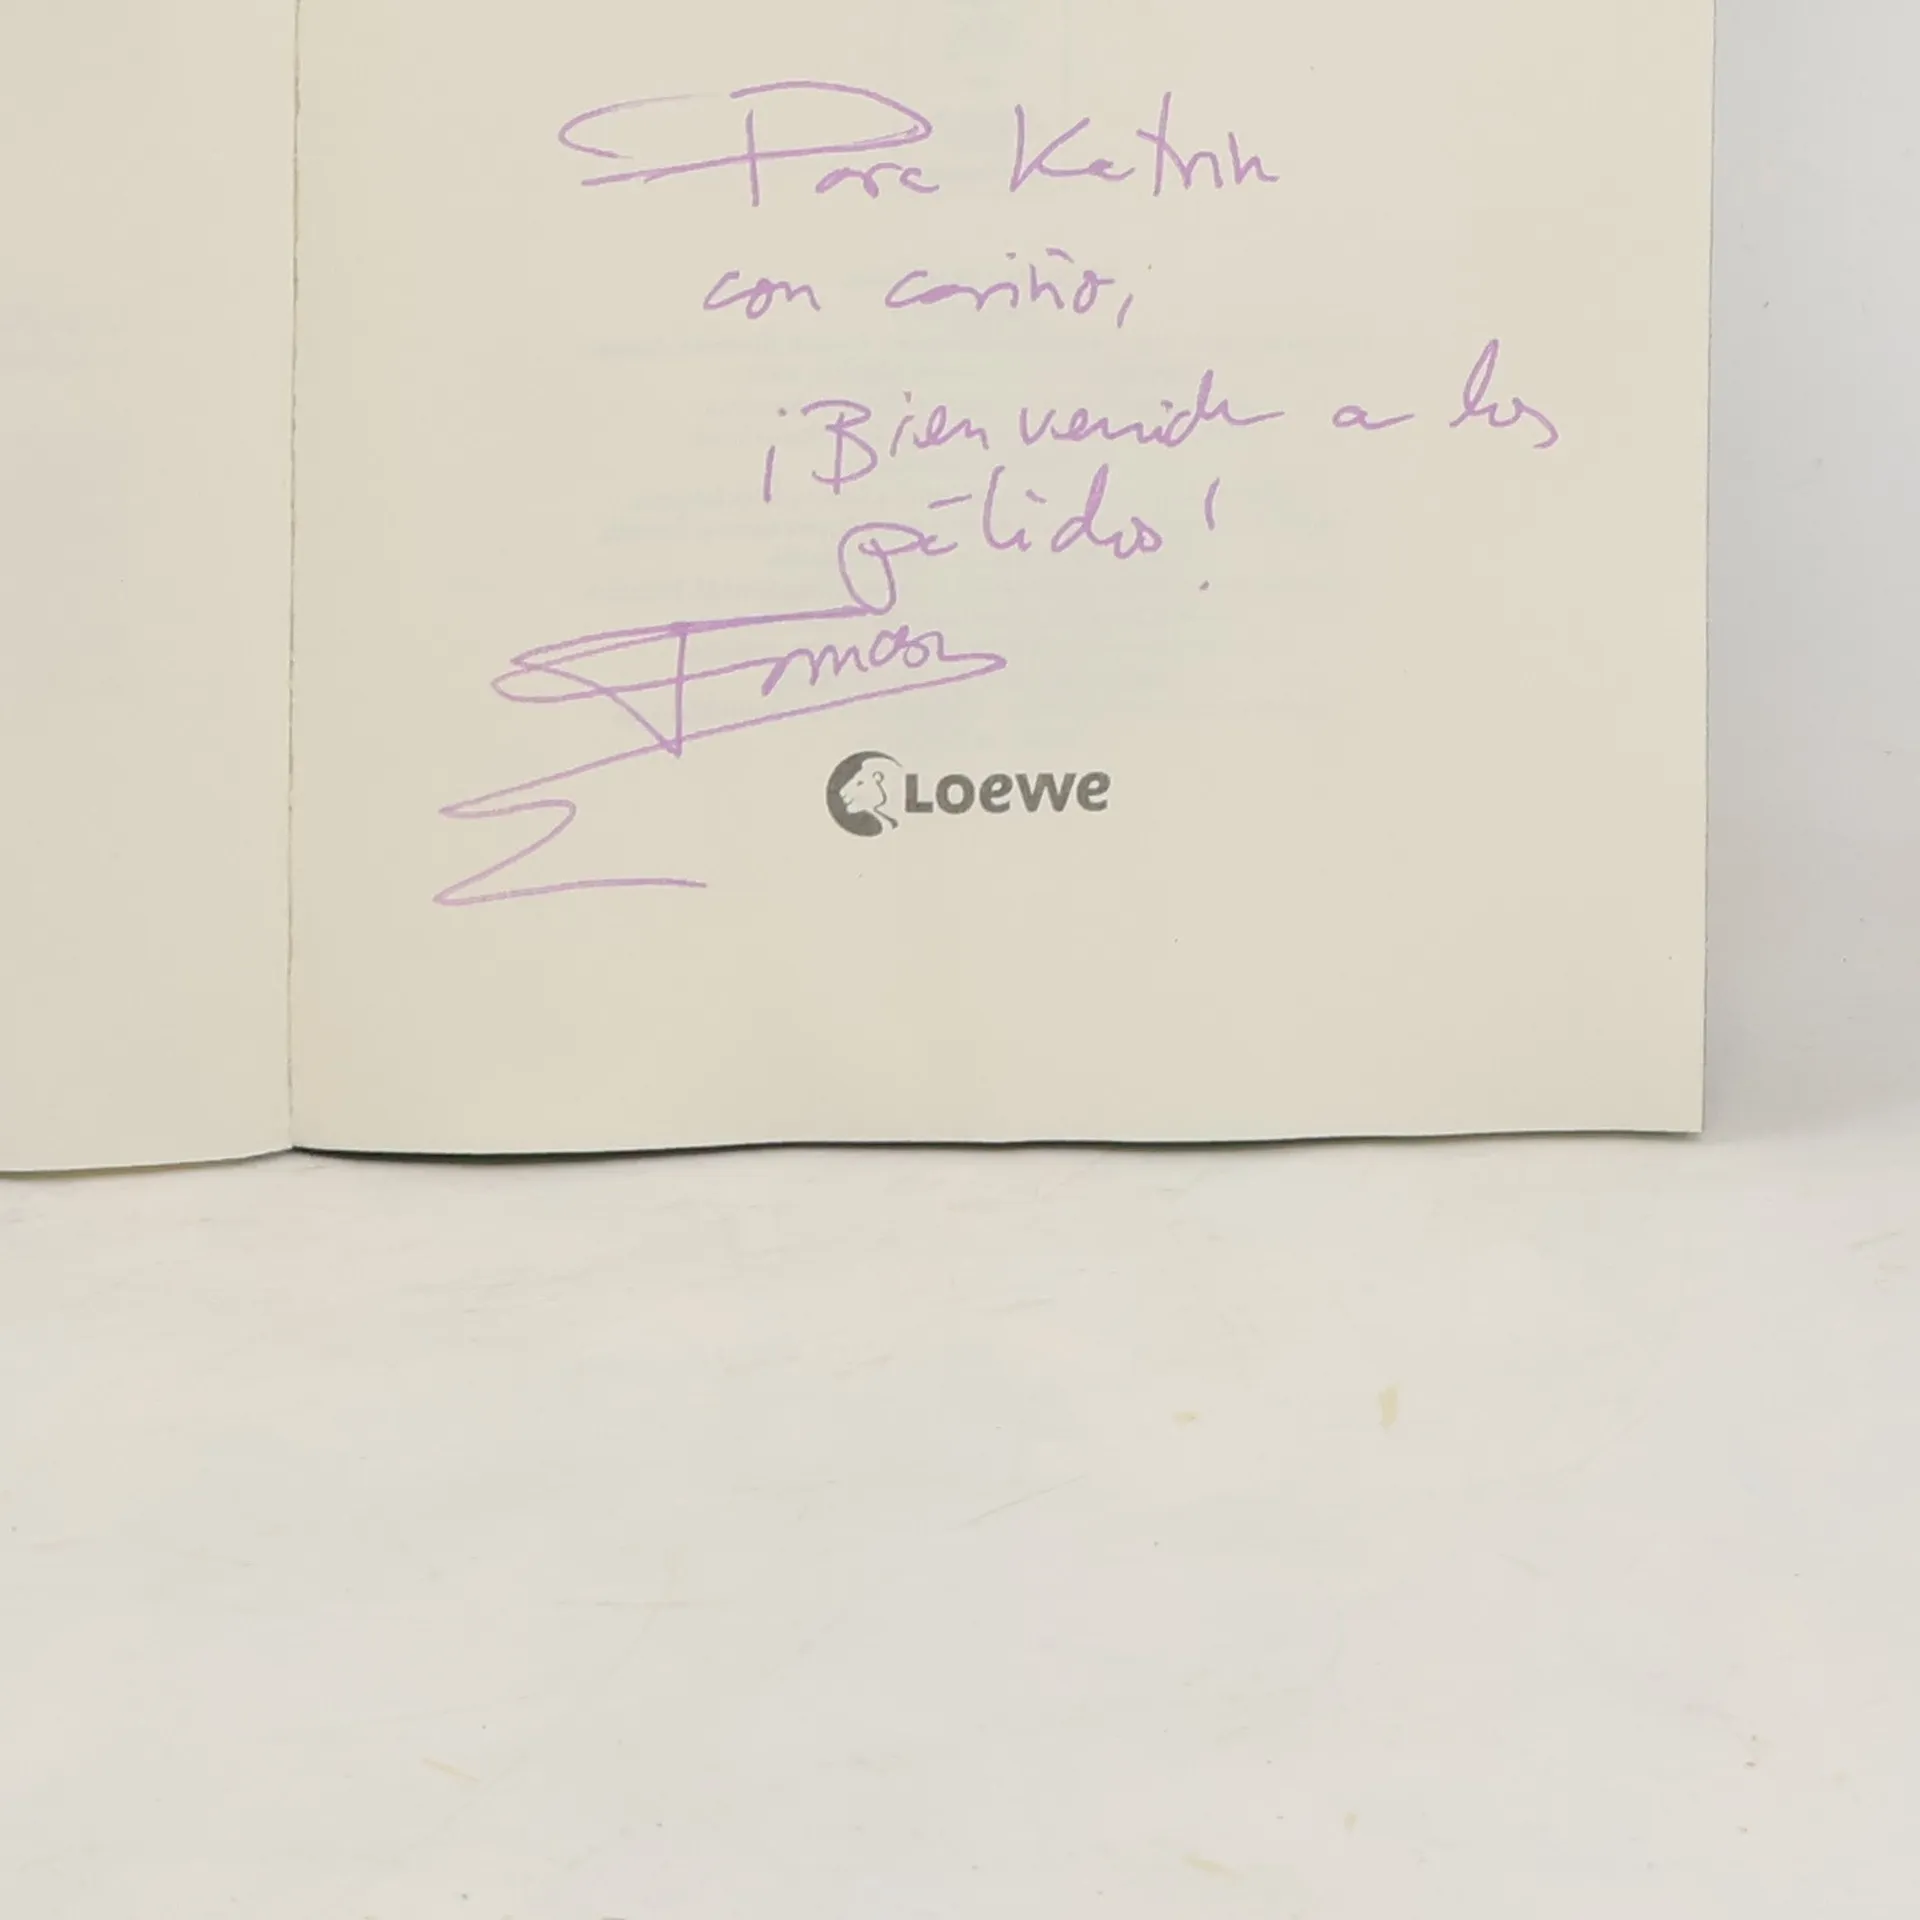 Para Katrin
con cariño,
¡Bienvenida a los
pélidos!
Loewe